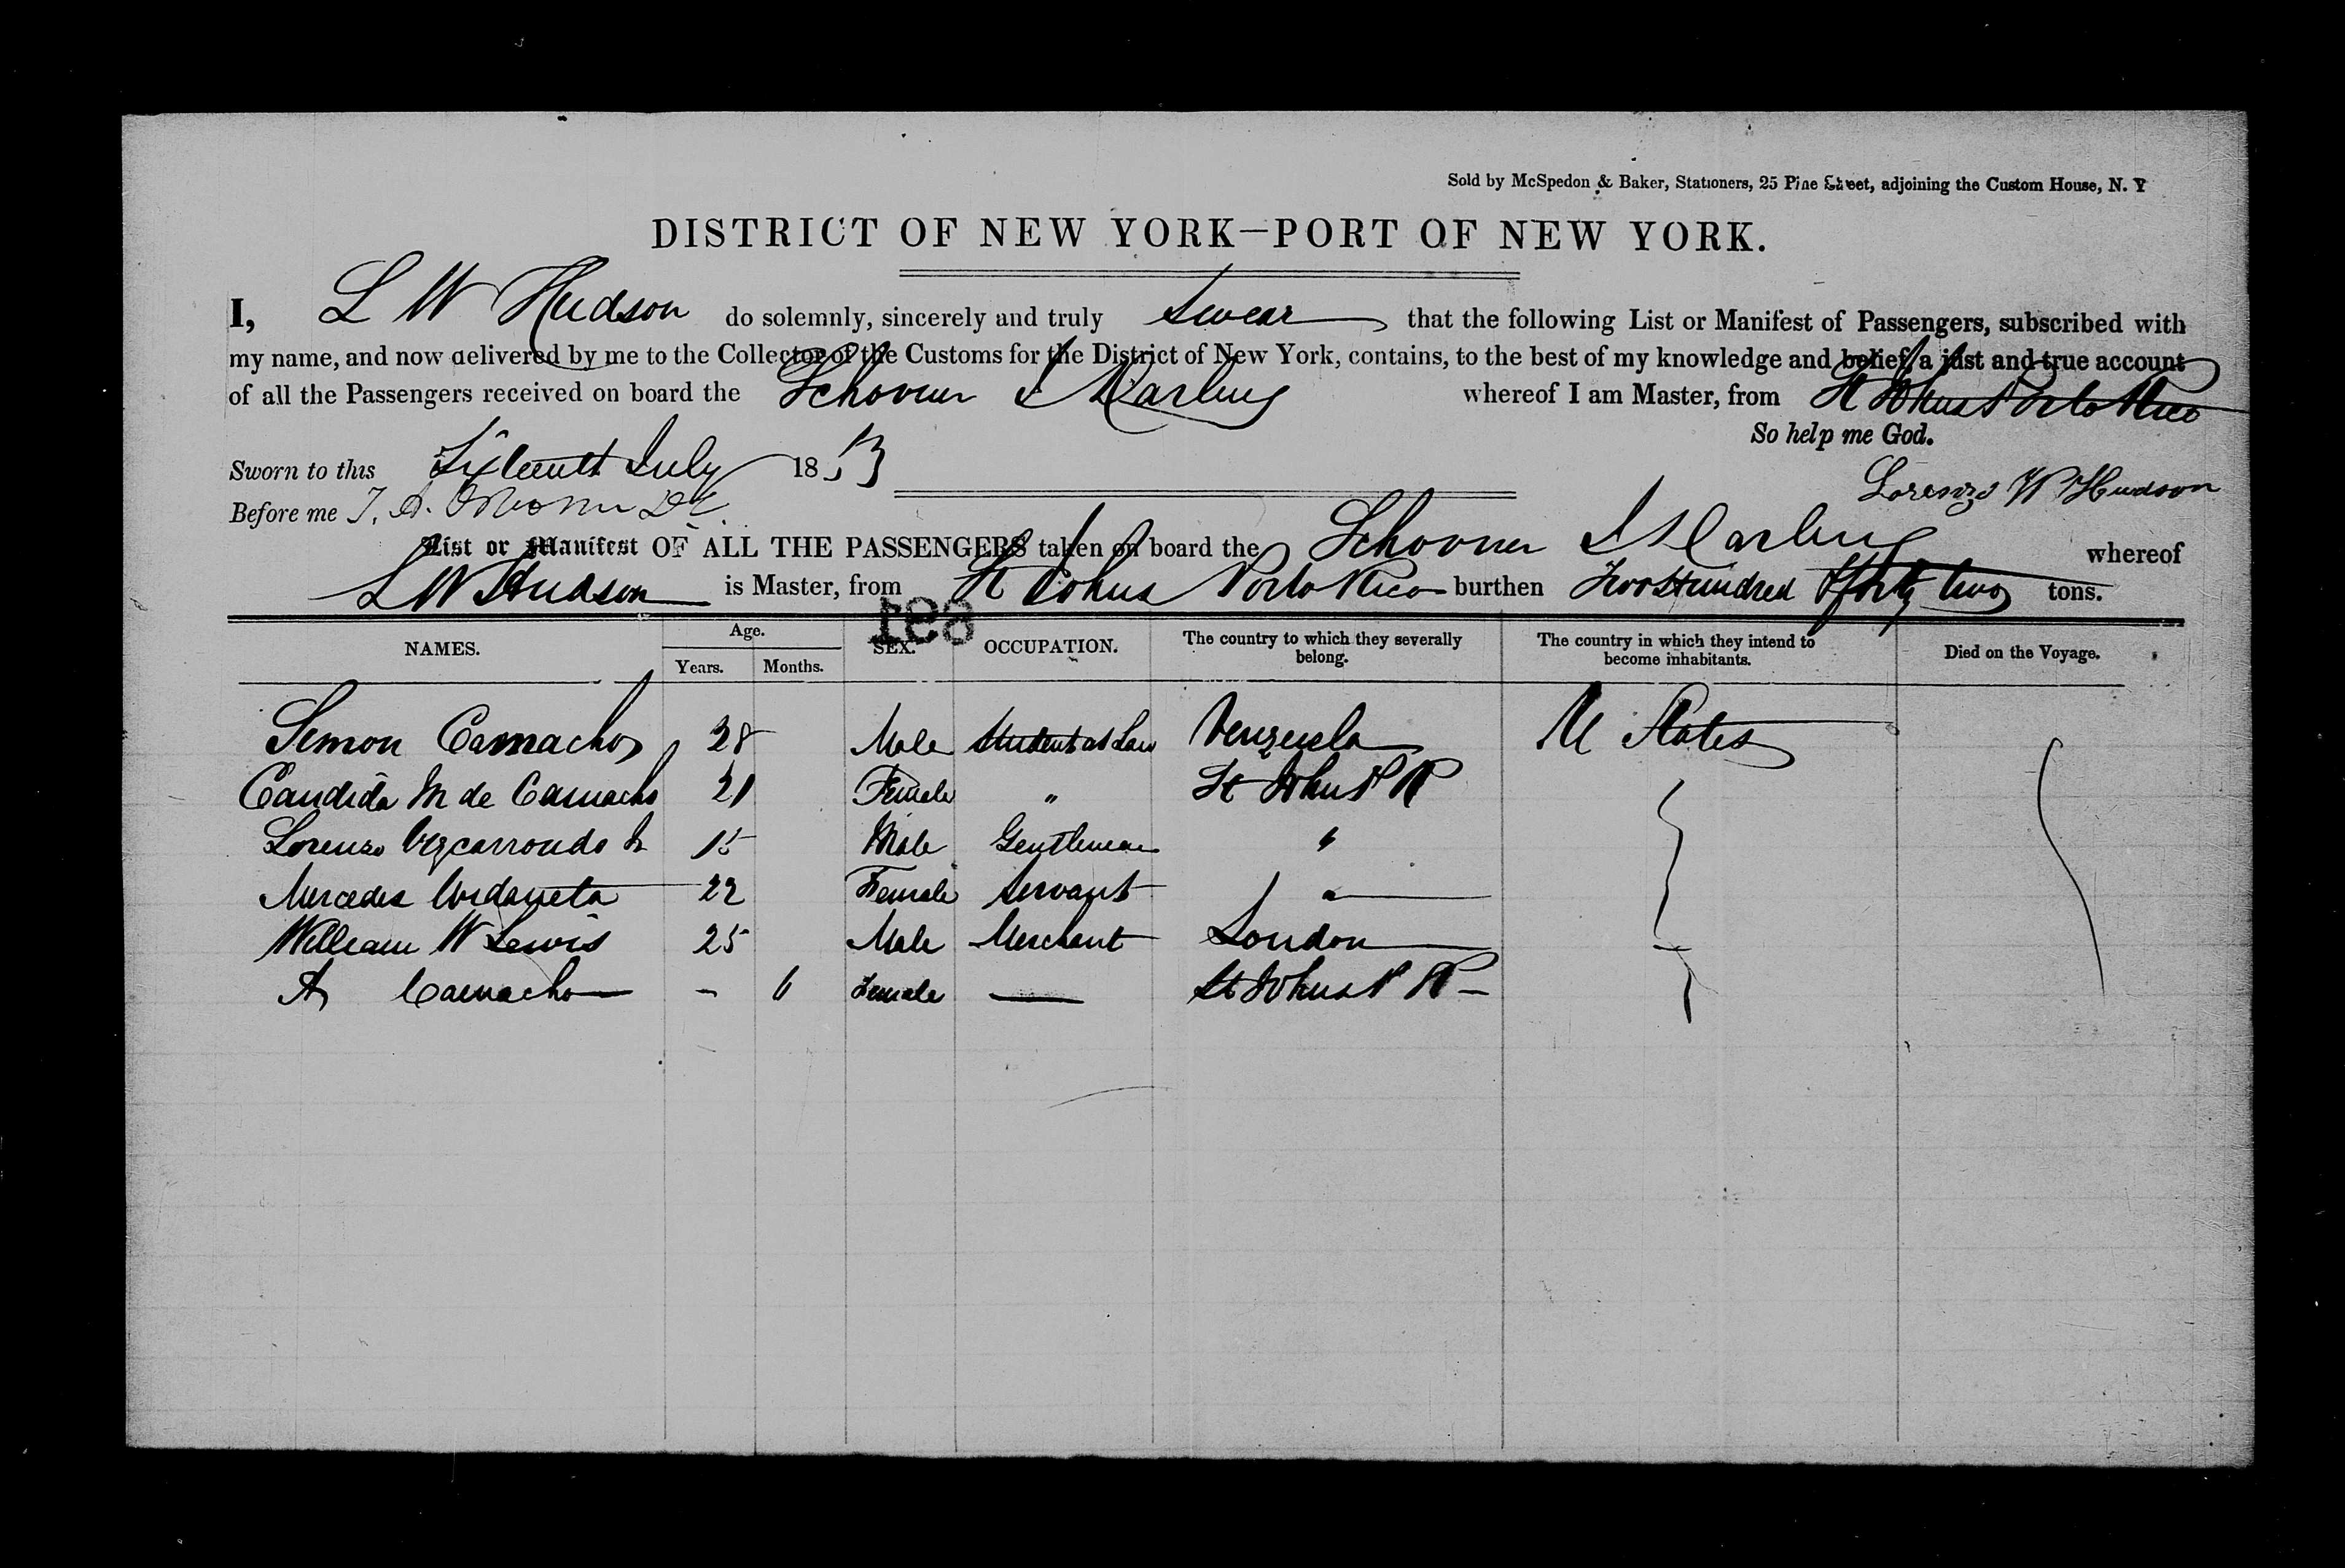 Sold by McSpedon & Baker, Stationers, 25 Pine Street, adjoining the Custom House, N. Y
DISTRICT OF NEW YORK—PORT OF NEW YORK.
I, L W Hudson do solemnly, sincerely and truly swear that the following List or Manifest of Passengers, subscribed with
my name, and now delivered by me to the Collector of the Customs for the District of New York, contains, to the best of my knowledge and belief, a just and true account
of all the Passengers received on board the Schooner whereof I am Master, from St Johns Porto Rico
So help me God.
Sworn to this July 1853
Lorenzo W Hudson
Before me
List or Manifest OF ALL THE PASSENGERS taken on board the Schooner whereof
L W Hudson is Master, from St Johns Porto Rico burthen Two Hundred & forty two tons.
168
NAMES. Age. Years. Months. SEX. OCCUPATION. The country to which they severally belong. The country in which they intend to become inhabitants. Died on the Voyage.
Simon Camacho 28 Male Student at Law Venzuela U States
Candida M de Camacho 21 Female " St Johns P R
Lorenzo Vizcarrondo 15 Male Gentleman "
Mercedes Urdaneta 22 Female Servant "
William W Lewis 25 Male Merchant London
A Camacho - 6 Female — St Johns P R -